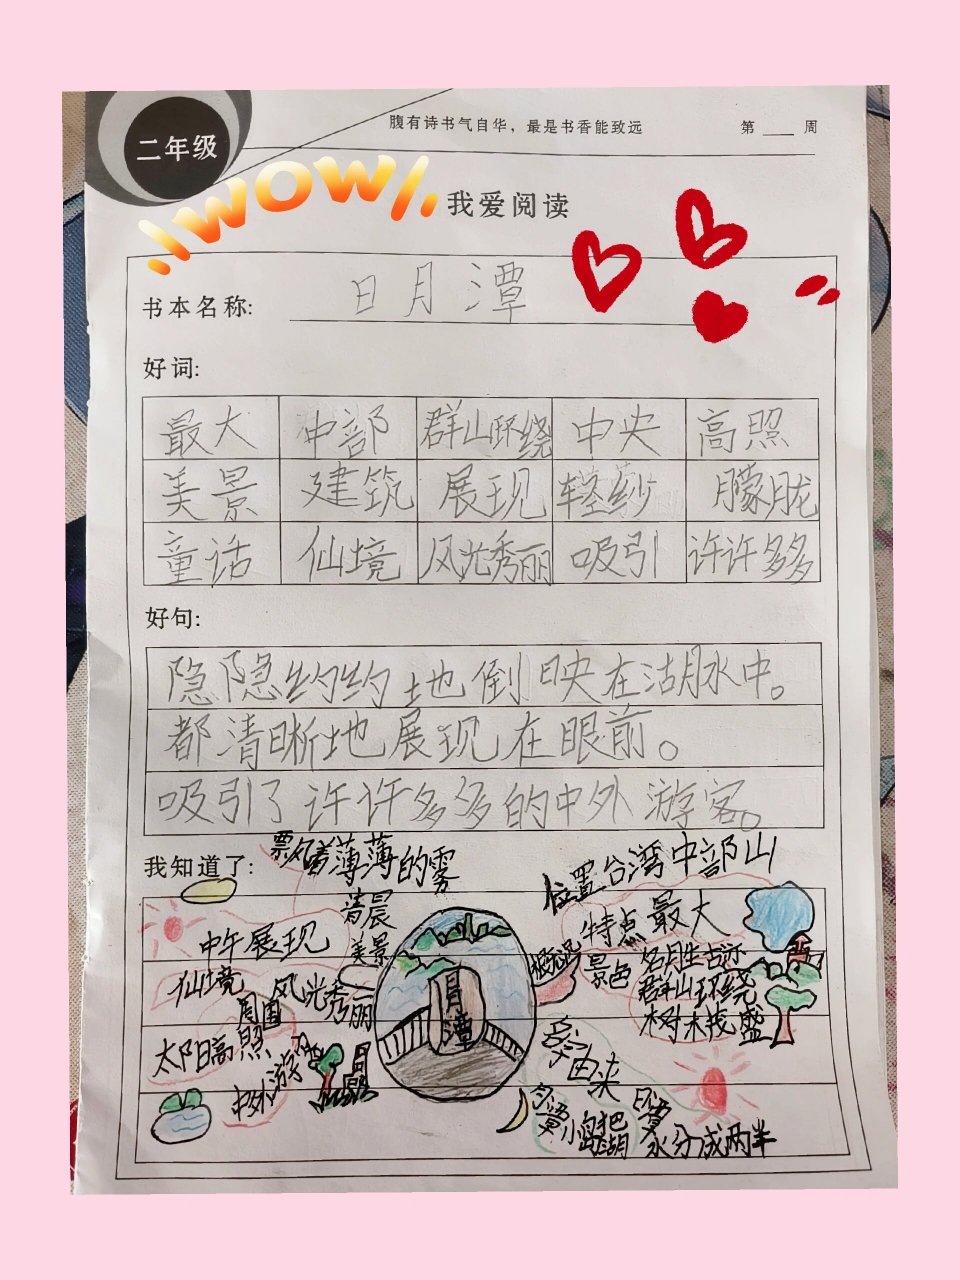 二年级
腹有诗书气自华，最是书香能致远
第 周
WOW
我爱阅读
书本名称: 日月潭
好词:
最大 中部 群山环绕 中央 高照
美景 建筑 展现 轻纱 朦胧
童话 仙境 风光秀丽 吸引 许许多多
好句:
隐隐约约地倒映在湖水中。
都清晰地展现在眼前。
吸引了许许多多的中外游客。
我知道了:
飘着薄薄的雾
清晨
美景
中午展现
仙境
周围
风光秀丽
太阳高照
中外游
日月潭
位置台湾中部山
特点最大
景色
名胜古迹
群山环绕
树木茂盛
名字由来
小岛把湖
水分成两半